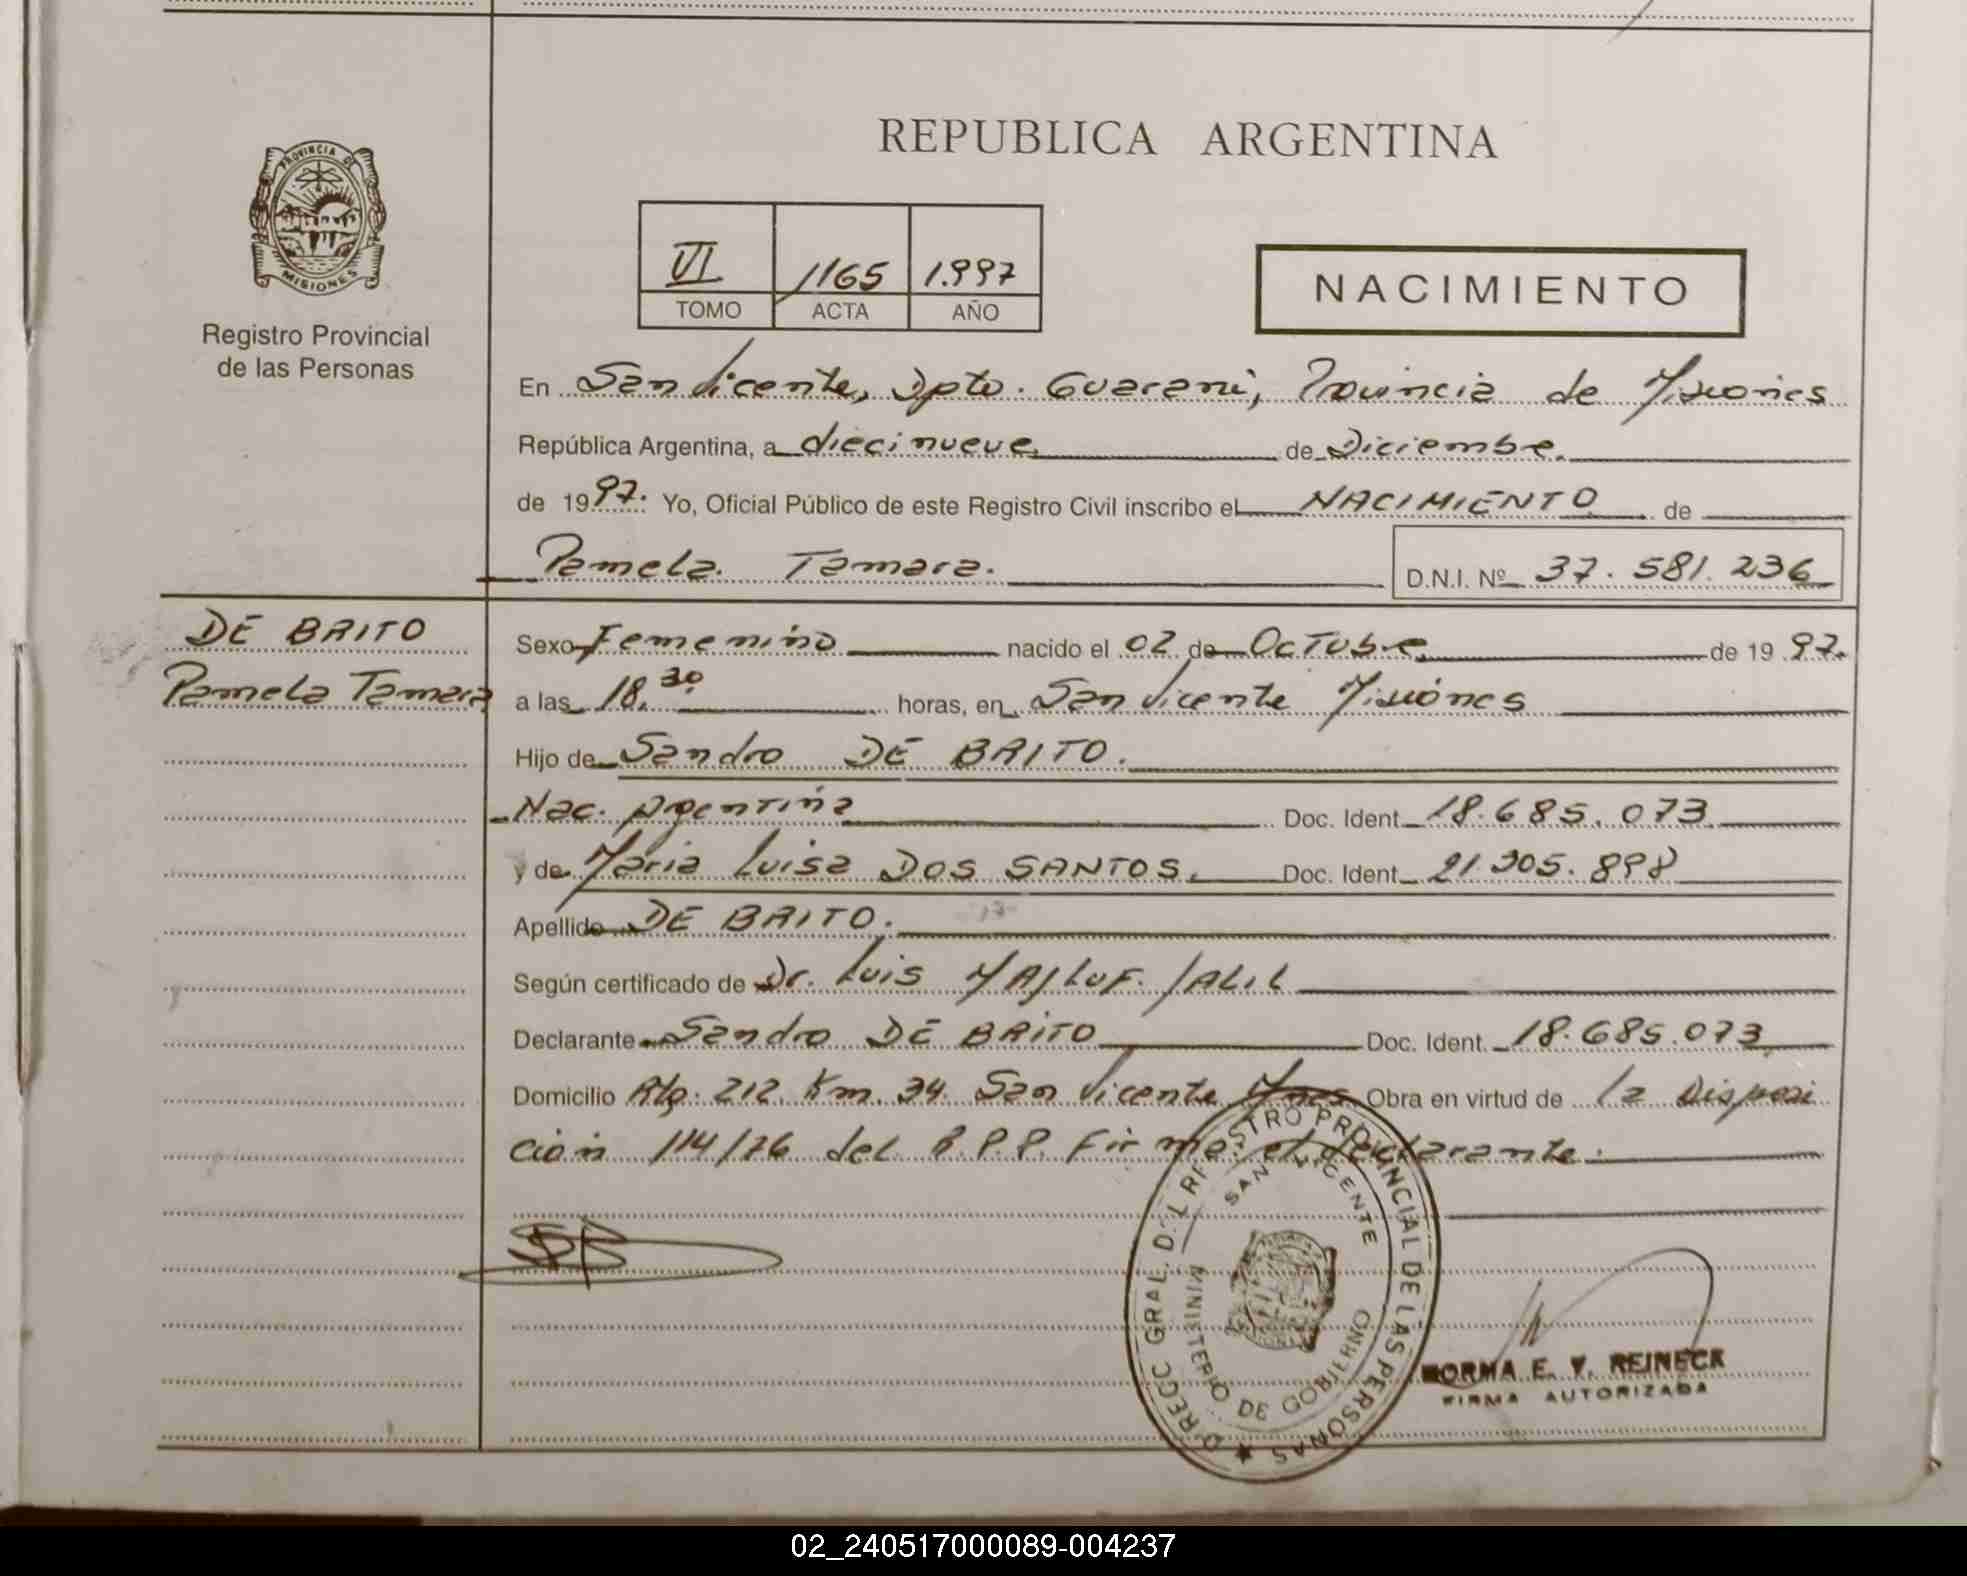 REPUBLICA ARGENTINA
PROVINCIA DE
MISIONES
Registro Provincial
de las Personas
VI 1165 1.997
TOMO ACTA AÑO
NACIMIENTO
En San Vicente, Dpto. Guarani, Provincia de Misiones
República Argentina, a diecinueve de Diciembre.
de 1997. Yo, Oficial Público de este Registro Civil inscribo el NACIMIENTO de
Pamela Tamara. D.N.I. Nº 37.581.236
DE BRITO
Pamela Tamara
Sexo Femenino nacido el 02 de Octubre de 1997.
a las 18.30 horas, en San Vicente Misiones
Hijo de Sandro DE BRITO.
Nac. Argentina Doc. Ident. 18.685.073
y de Maria Luisa DOS SANTOS. Doc. Ident. 21.305.898
Apellido DE BRITO.
Según certificado de Dr. Luis MAJLUF. JALIL
Declarante Sandro DE BRITO Doc. Ident. 18.685.073
Domicilio Rta. 212 Km. 34. San Vicente Mnes Obra en virtud de la Disposi
ción 114/76 del R.P.P. Firma: el declarante.
DIRECC GRAL. DEL REGISTRO PROVINCIAL DE LAS PERSONAS
SAN VICENTE
MINISTERIO DE GOBIERNO
NORMA E. V. REINECK
FIRMA AUTORIZADA
02_240517000089-004237